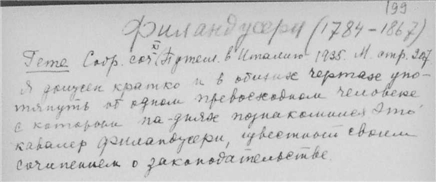 199
Филандусери (1784-1867)
Гете Собр. соч. XI Путеш. в Италию 1935. М. стр. 207
Я должен кратко и в общих чертах упо-
мянуть об одном превосходном человеке
с которым на-днях познакомился Это
кавалер Филандусери, известный своим
сочинением о законодательстве.